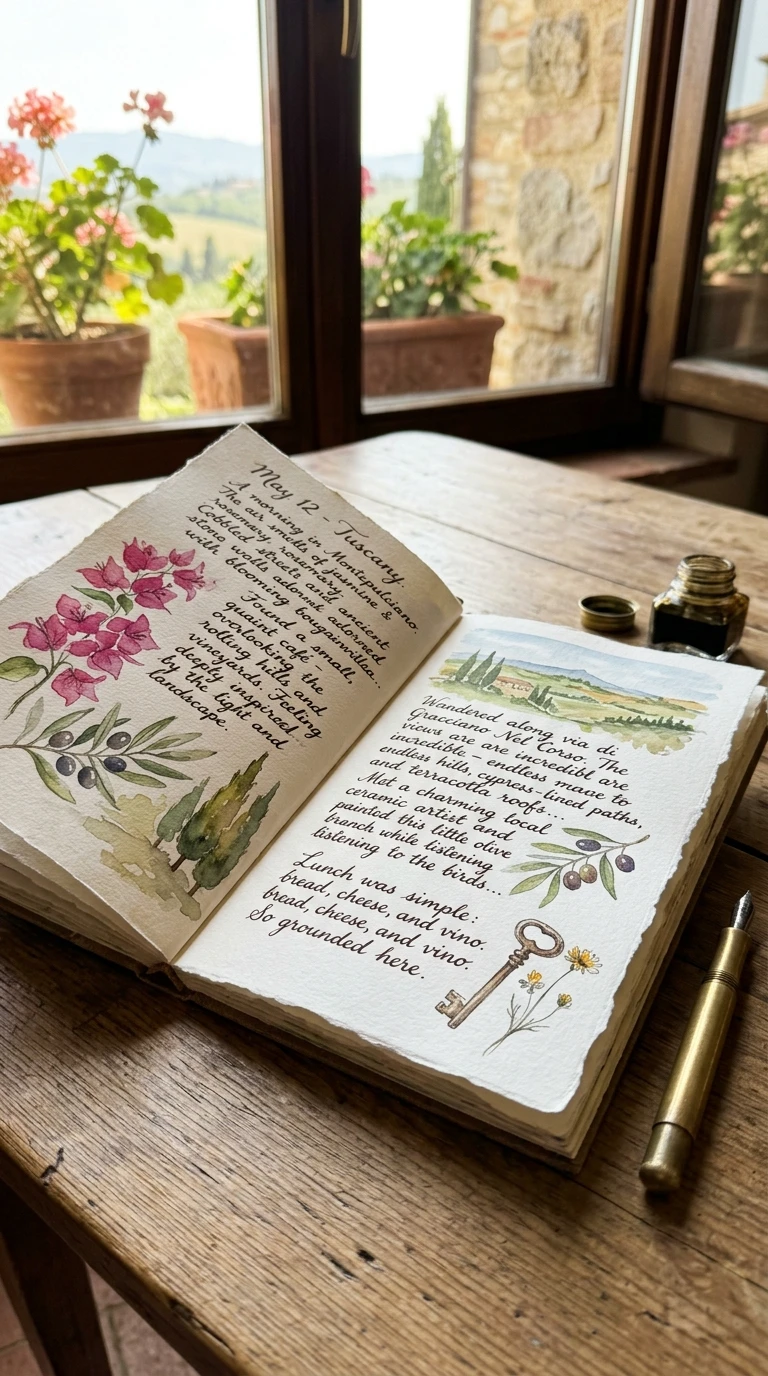 May 12 - Tuscany.
A morning in Montepulciano.
The air smells of jasmine &
rosemary, rosemary.
Cobbled streets and ancient
stone walls adornet adorored
with blooming bougainvillea...
Found a small,
quaint café -
overlooking the
rolling hills and
vineyards. Feeling
deeply inspired...
by the light and
landscape.
Wandered along via di
Gracciano Nel Corso. The
views are are incredibl are
incredible - endless mace to
endless hills, cypress-lined paths,
and terracotta roofs...
Met a charming local
ceramic artist and
painted this little olive
branch while listening
listening to the birds...
Lunch was simple:
bread, cheese, and vino.
bread, cheese, and vino.
So grounded here.